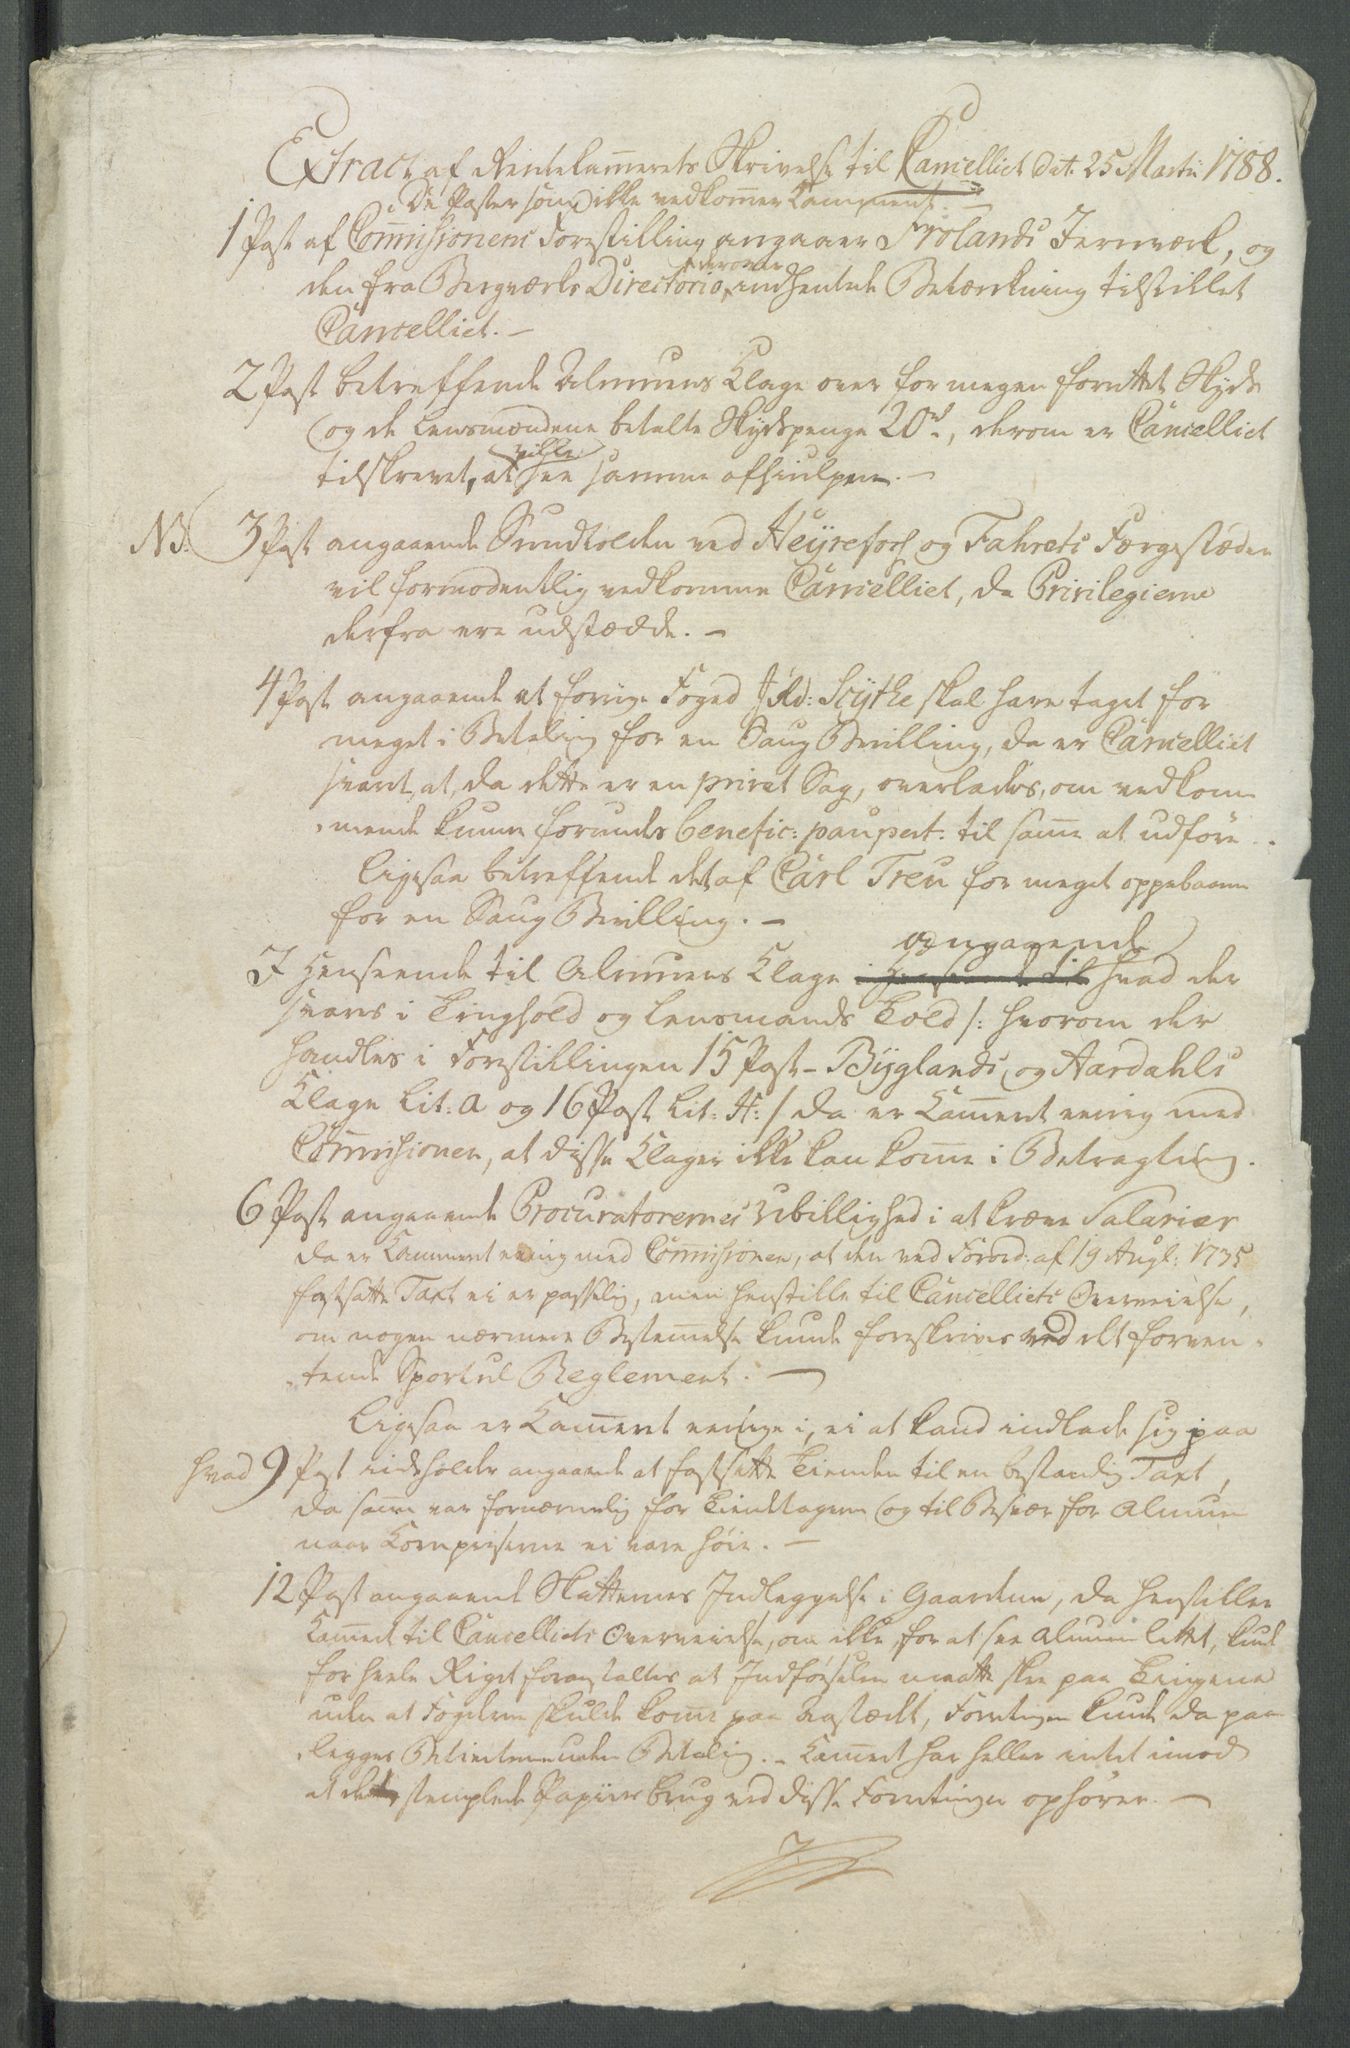 Extract af Rentekamerets Skrivelse til Cancelliet Dat: 25 Martii 1788.
De Poster som ikke vedkomer Kammeret. -
1 Post af Commisionens Forestilling angaaer Frolands Jernværk, og
den fra Bergværks Directorio derover indhentede Betænkning tilstillet
Cancelliet. -
2 Post betreffende Almuens Klage over for megen forrettet Skyds
og de Lensmændene betalte Skydspenge 20 rd, derom er Cancelliet
tilskrevet, at ville see samme afhiulpen. -
NB. 3 Post angaaende Sundtolden ved Heyrefos og Fahrets Færgestæder
vil formodentlig vedkomme Cancelliet, da Privilegierne
derfra ere udstædde. -
4 Post angaaende at forrige Foged Scythe skal have taget for
meget i Betaling for en Saug Bevilling, da er Cancelliet
svaret, at, da dette er en privat Sag, overlades, om vedkom
mende kunne forundes benefic: paupert: til same at udføre.
Ligesaa betreffende det af Carl Treu for meget oppebaarne
for en Saug Bevilling. -
I Henseende til Almuens Klage i Henseende til angaaende hvad der
svares i Tinghold og Lensmands Told /: hvorom der
handles i Forestillingen 15 Post - Byglands og Aardahls
Klage Lit: a og 16 Post Lit: H: / da er Kameret eenig med
Commisionen, at disse Klager ikke kan kome i Betragtning.
6 Post angaaende Procuratorernes Ubillighed i at kræve Salarier
da er Kammeret eenig med Commisionen, at den ved Forord: af 19 Augl: 1735
fastsatte Taxt ei er passelig, men henstille til Cancelliets Overveielse,
om nogen nærmere Bestemelse kunde foreskrives ved det forven-
tende Sportul Reglement. -
Ligesaa er Kameret eenige i, ei at kand indlade sig paa
hvad 9 Post indeholder angaaende at fastsætte Tienden til en bestandig Taxt,
da same var fornærmelig for Tiendtagerne og til Besvær for Almuen
naar Kornpriserne ei vare høie. -
12 Post angaaende Skatternes Indleggelse i Gaardene, da henstiller
Kameret til Cancelliets Overveielse, om ikke, for at see Almuen lettet, kunde
for heele Riget foranstaltes at Indførselen maatte skee paa Tingene
uden at Fogderne skulde kome paa Aastædet, Foretningen kunde da paa
legges Betienterne uden Betaling. - Kameret har heller intet imod
at det stemplede Papiirs brug ved disse Forretninger ophører. -